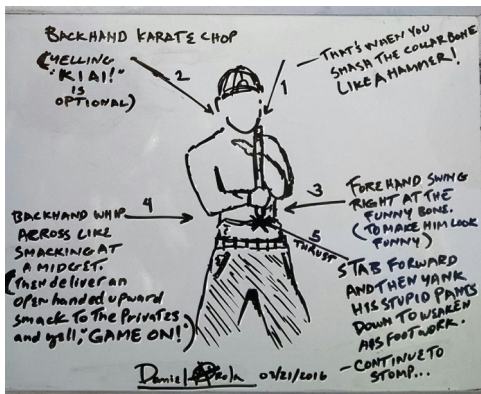 BACKHAND KARATE CHOP
(YELLING
"KIAI!"
IS
OPTIONAL)
2
1
THAT'S WHEN YOU
SMASH THE COLLARBONE
LIKE A HAMMER!
3
FOREHAND SWING
RIGHT AT THE
FUNNY BONE.
(TO MAKE HIM LOOK
FUNNY)
4
BACKHAND WHIP
ACROSS LIKE
SMACKING AT
A MIDGET.
(Then deliver an
open handed upward
smack to the Privates
and yell, "GAME ON!")
5
THRUST
STAB FORWARD
AND THEN YANK
HIS STUPID PANTS
DOWN TO WEAKEN
HIS FOOTWORK.
- CONTINUE TO
STOMP...
Daniel 03/21/2016